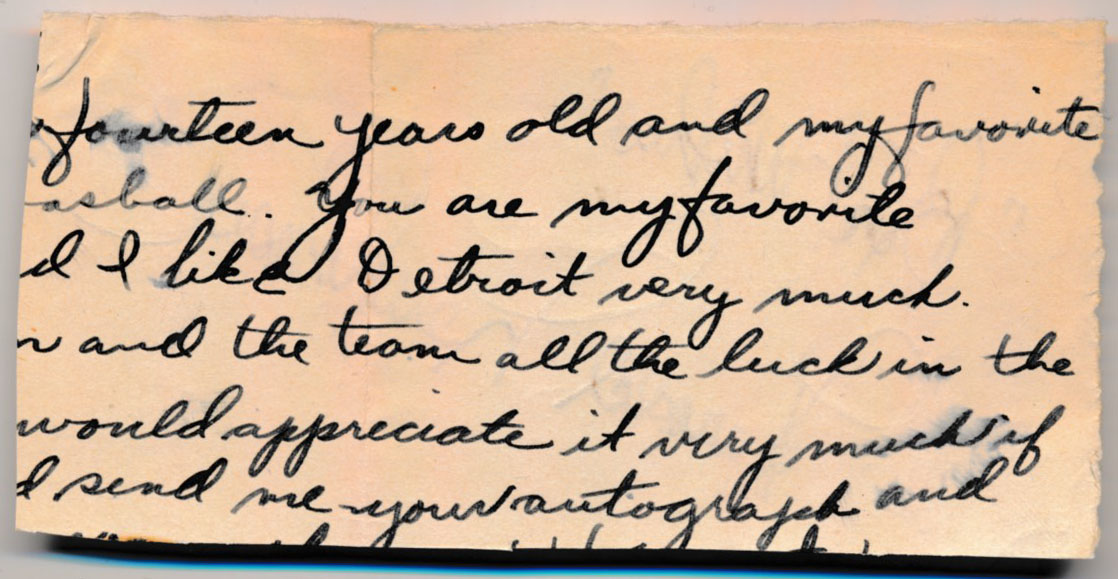 fourteen years old and my favorite
asball. You are my favorite
d I like Detroit very much.
and the team all the luck in the
would appreciate it very much if
d send me your autograph and